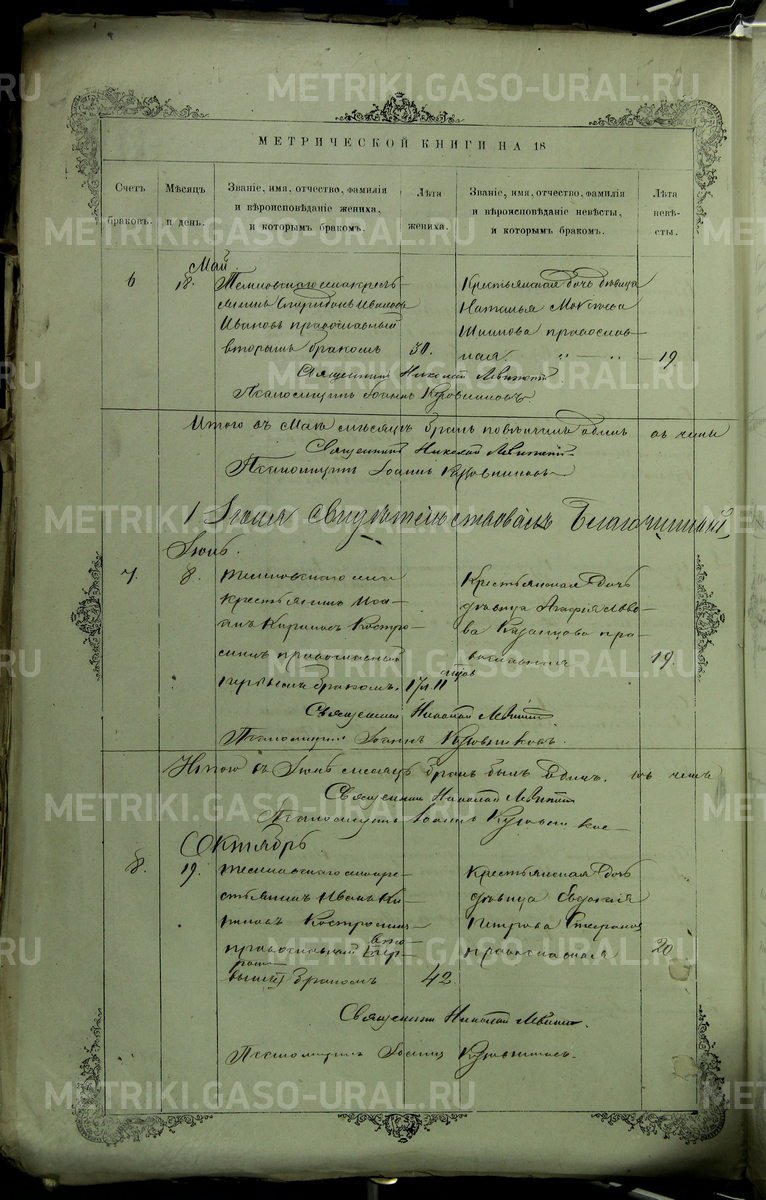 METRIKI.GASO-URAL.RU
МЕТРИЧЕСКОЙ КНИГИ НА 18
Счетъ браковъ.
Мѣсяцъ и день.
Званіе, имя, отчество, фамилія и вѣроисповѣданіе жениха, и которымъ бракомъ.
Лѣта жениха.
Званіе, имя, отчество, фамилія и вѣроисповѣданіе невѣсты, и которымъ бракомъ.
Лѣта невѣ-сты.
Май.
6 18.
Спиридонъ Ивановъ
Ивановъ православный
вторымъ бракомъ 30.
Крестьянская дочь дѣвица
Наталья
православ-
ная. 19.
Священникъ Николай Левитскій.
Псаломщикъ Іоаннъ Кузовниковъ.
Итого въ Маѣ мѣсяцѣ бракъ повѣнчанъ одинъ въ чемъ
Священникъ Николай Левитскій
Псаломщикъ Іоаннъ Кузовниковъ
1 Іюня свидѣтельствовалъ Благочинный,
Іюнь.
7. 8.
крестьянинъ Іоа-
нъ Кириловъ Костро-
минъ православный
первымъ бракомъ. 17 л 11
Крестьянская дочь
дѣвица Агафія Льво-
ва Казанцова пра-
вославная 19.
Священникъ Николай Левитскій
Псаломщикъ Іоаннъ Кузовниковъ.
Итого въ Іюнѣ мѣсяцѣ бракъ былъ одинъ. въ чемъ
Священникъ Николай Левитскій
Псаломщикъ Іоаннъ Кузовников
Октябрь
8. 19.
крестьянинъ Иванъ Ки-
риловъ Костроминъ
православный
бракомъ 42
Крестьянская дочь
дѣвица Евдокія
Петрова
православная 20
Священникъ Николай Левитскій.
Псаломщикъ Іоаннъ Кузовниковъ.